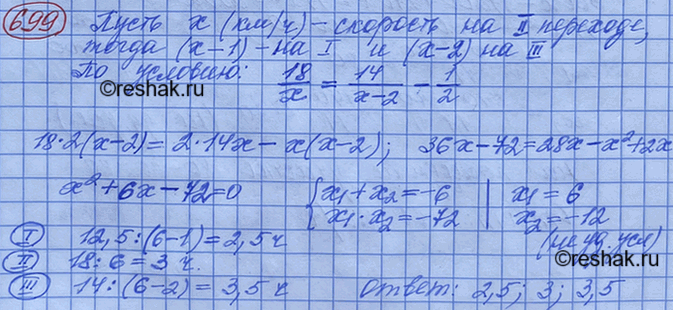 699 Пусть x (км/ч) – скорость на II переходе,
тогда (x-1) – на I и (x-2) на III
По условию: 18/x = 14/(x-2) - 1/2
©reshak.ru ©reshak.ru
18·2(x-2) = 2·14x - x(x-2); 36x-72=28x-x²+2x
x²+6x-72=0 { x₁+x₂=-6 | x₁=6
x₁·x₂=-72 | x₂=-12
(не уд. усл)
I 12,5:(6-1)=2,5 ч
II 18:6=3 ч.
III 14:(6-2)=3,5 ч ответ: 2,5; 3; 3,5
©reshak.ru ©reshak.ru